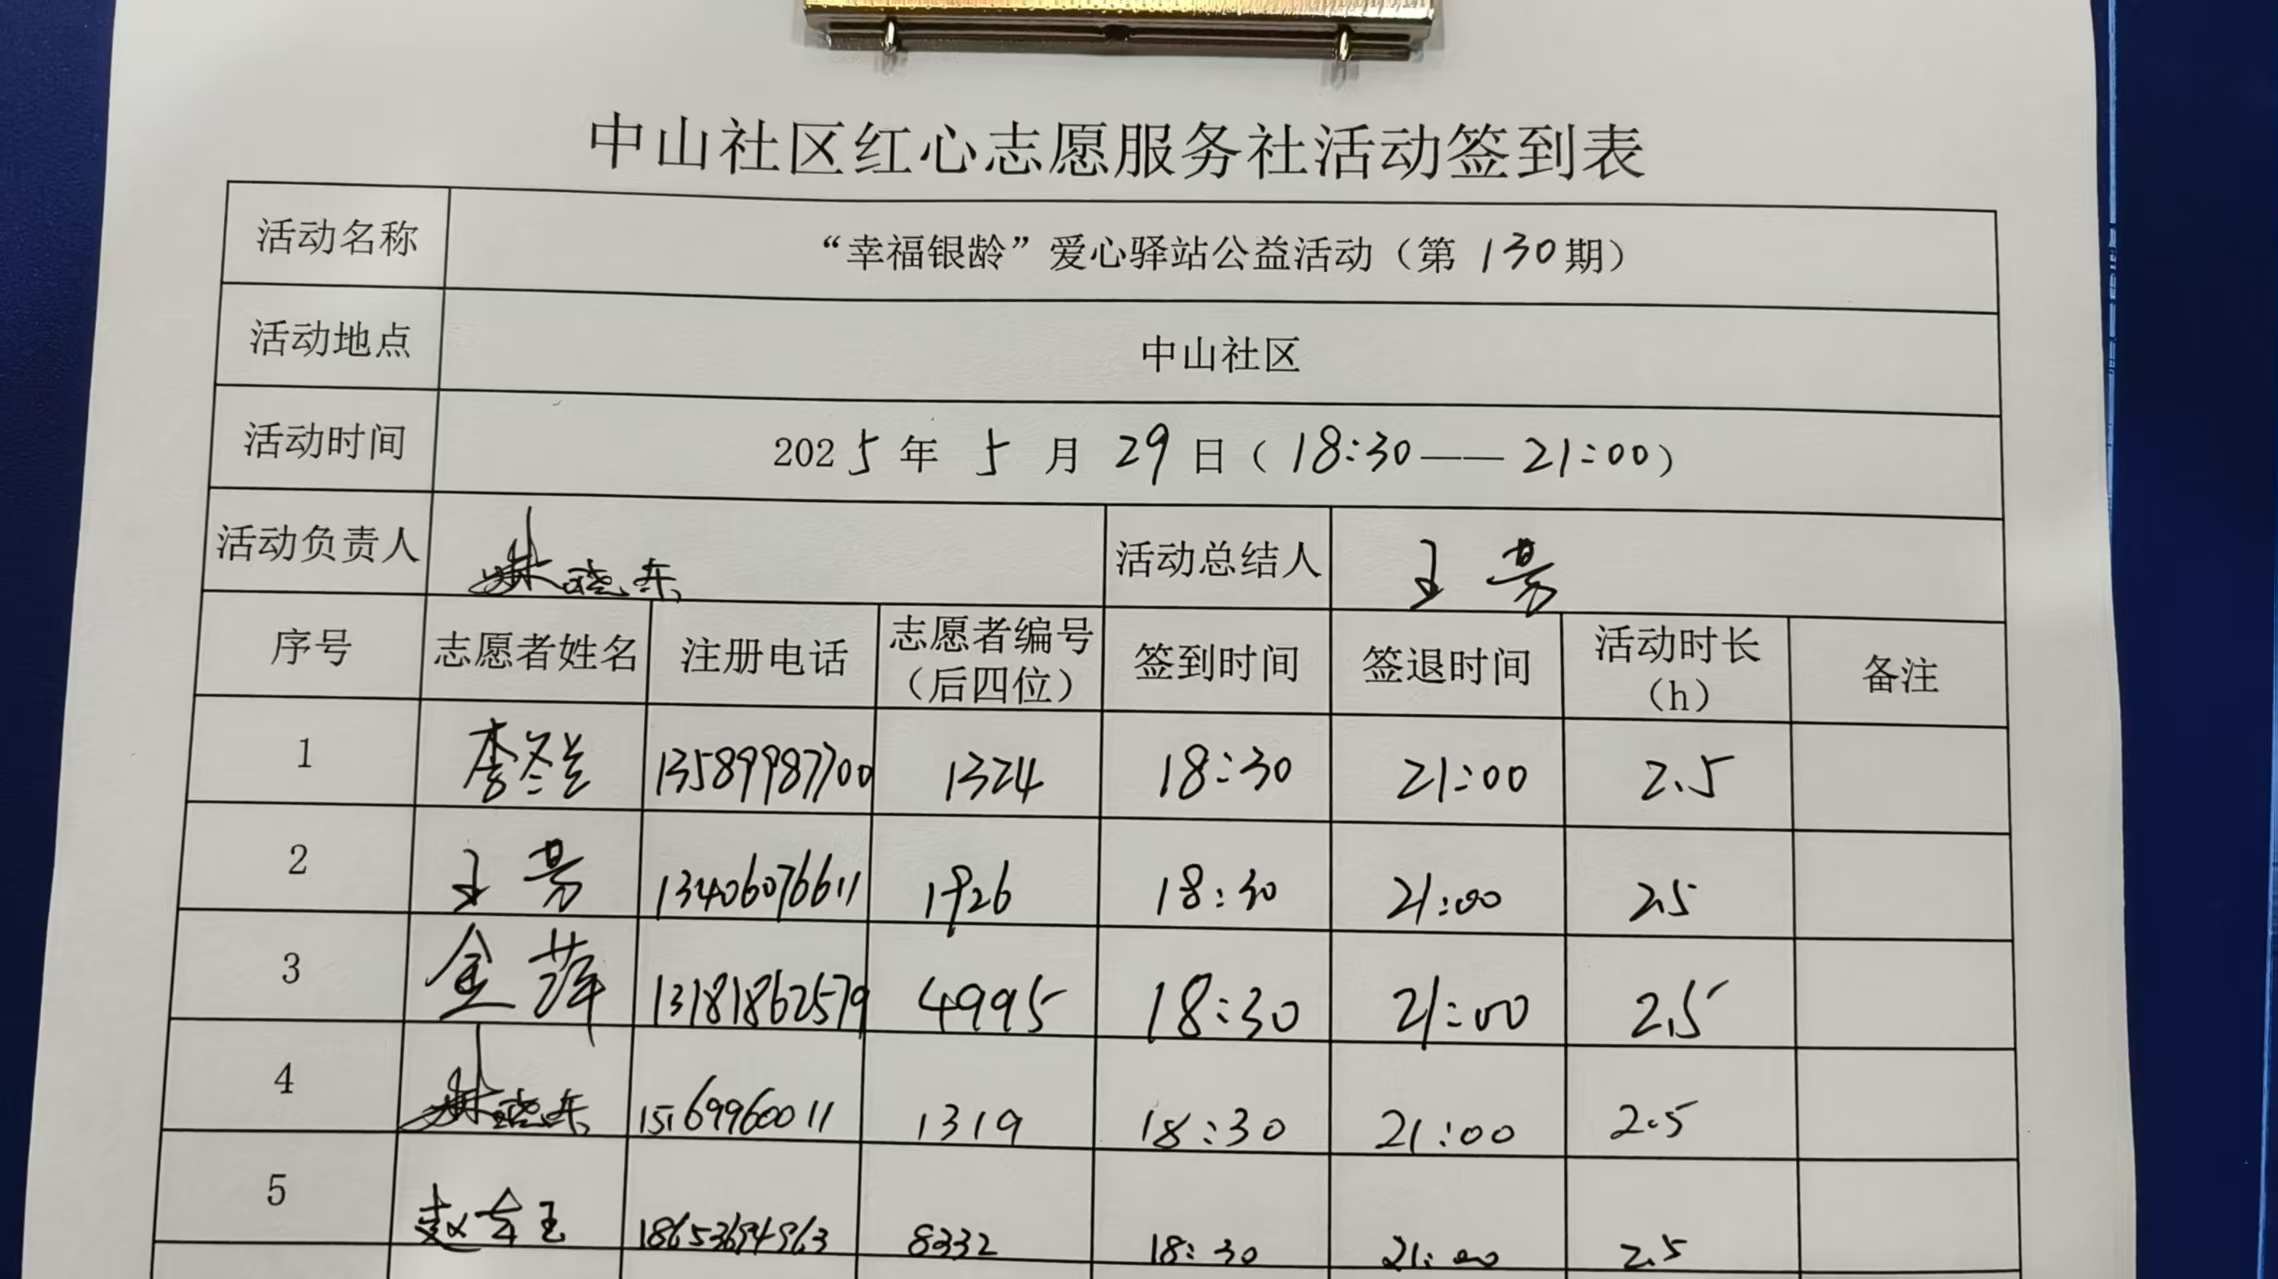 中山社区红心志愿服务社活动签到表
活动名称 “幸福银龄”爱心驿站公益活动（第 130 期）
活动地点 中山社区
活动时间 2025 年 5 月 29 日（18:30——21:00）
活动负责人 晓东 活动总结人 王芳
序号 志愿者姓名 注册电话 志愿者编号（后四位） 签到时间 签退时间 活动时长（h） 备注
1 李冬兰 13589987700 1324 18:30 21:00 2.5
2 王芳 13406076611 1926 18:30 21:00 2.5
3 金萍 13181862579 4995 18:30 21:00 2.5
4 晓东 15169960011 1319 18:30 21:00 2.5
5 赵玉 18653694963 8332 18:30 21:00 2.5